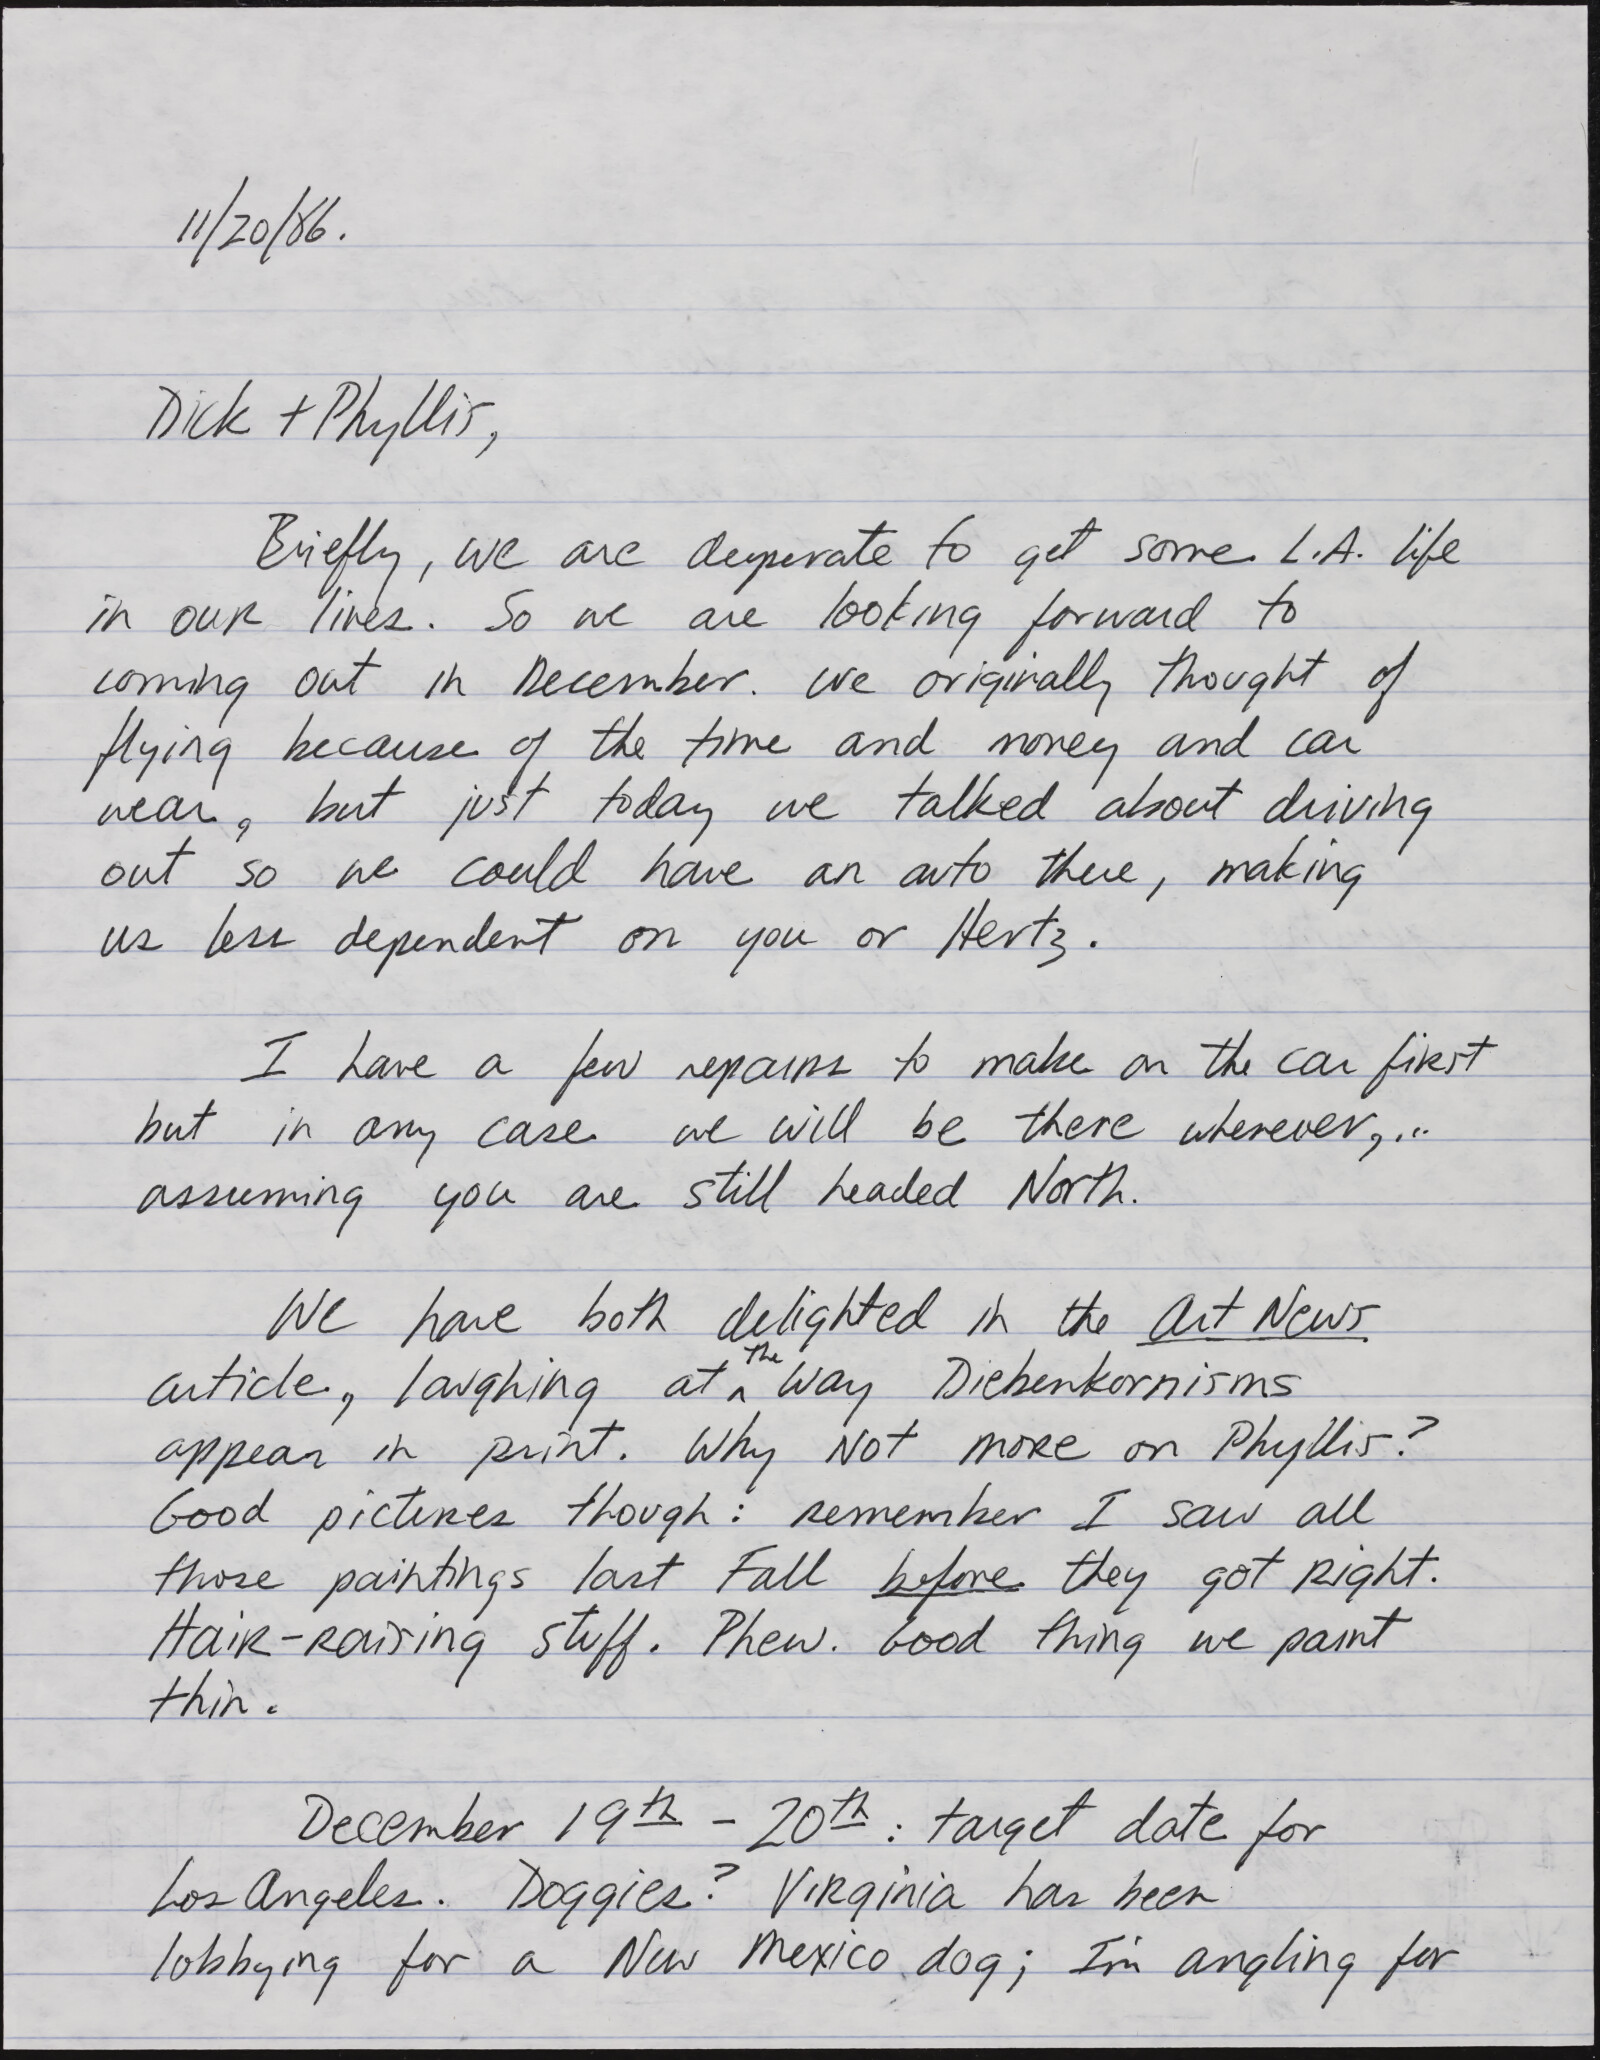 11/20/86.
Dick + Phyllis,
Briefly, we are desperate to get some L.A. life
in our lives. So we are looking forward to
coming out in December. We originally thought of
flying because of the time and money and car
wear, but just today we talked about driving
out so we could have an auto there, making
us less dependent on you or Hertz.
I have a few repairs to make on the car first
but in any case we will be there whenever,...
assuming you are still headed North.
We have both delighted in the Art News
article, laughing at the way Diebenkornisms
appear in print. Why not more on Phyllis?
Good pictures though: remember I saw all
those paintings last Fall before they got right.
Hair-raising stuff. Phew. Good thing we paint
thin.
December 19th - 20th: target date for
Los Angeles. Doggies? Virginia has been
lobbying for a New Mexico dog; I'm angling for